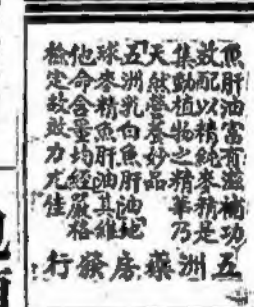 魚肝油富有滋補功
效配以精純麥精是
集動植物之精華乃
天然營養妙品
五洲乳白魚肝油地
球麥精魚肝油其維
他命含量均經嚴格
檢定故效力尤佳
五洲藥房發行